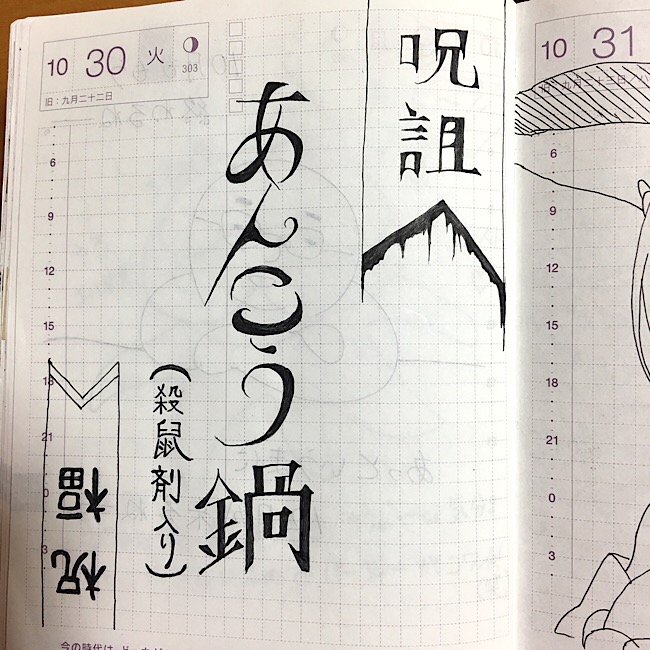 10 30 火
303
旧：九月二十二日
10 31
呪詛
あんこう鍋
（殺鼠剤入り）
祝福
6
9
12
15
18
21
0
3
6
9
12
15
18
21
0
3
今の時代は